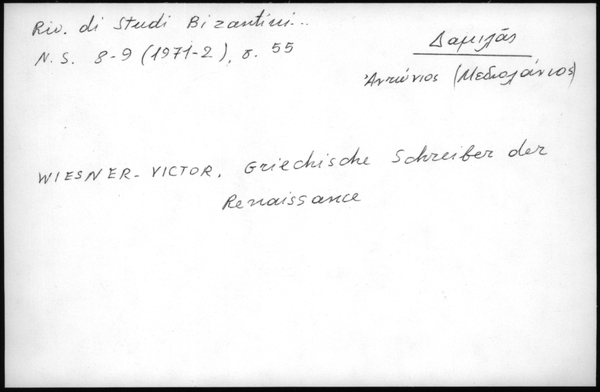 Riv. di Studi Bizantini...
N.S. 8-9 (1971-2), σ. 55
Δαμιλάς
Ἀντώνιος (Μεδιολάνιος)
WIESNER-VICTOR, Griechische Schreiber der
Renaissance